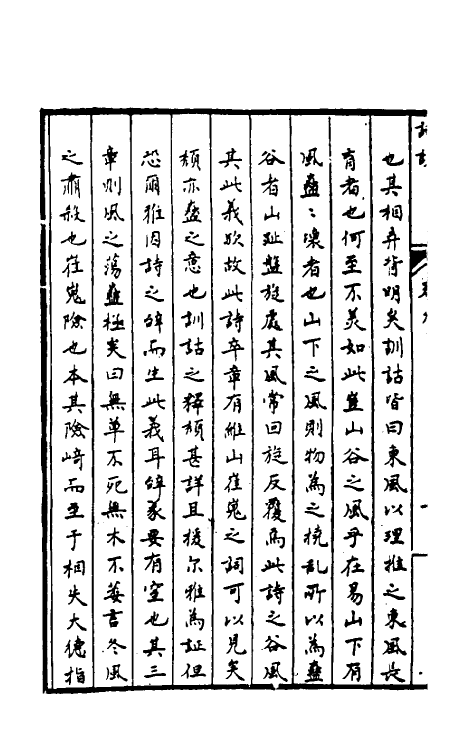 也其相弃背明矣訓詁皆曰東風以理推之東風長
育者也何至不美如此豈山谷之風乎在易山下有
風蠱蠱壞者也山下之風則物為之撓亂所以為蠱
谷者山趾盤旋處其風常回旋反覆為此詩之谷風
其此義歟故此詩卒章有維山崔嵬之詞可以見矣
頹亦蠱之意也訓詁之釋頹甚詳且援尔雅為証但
恐爾雅因詩之辞而生此義耳辞豕要有空也其三
章則風之蕩蠱極矣曰無草不死無木不萎言冬風
之肅殺也崔嵬險也本其險崎而至于相失大德指